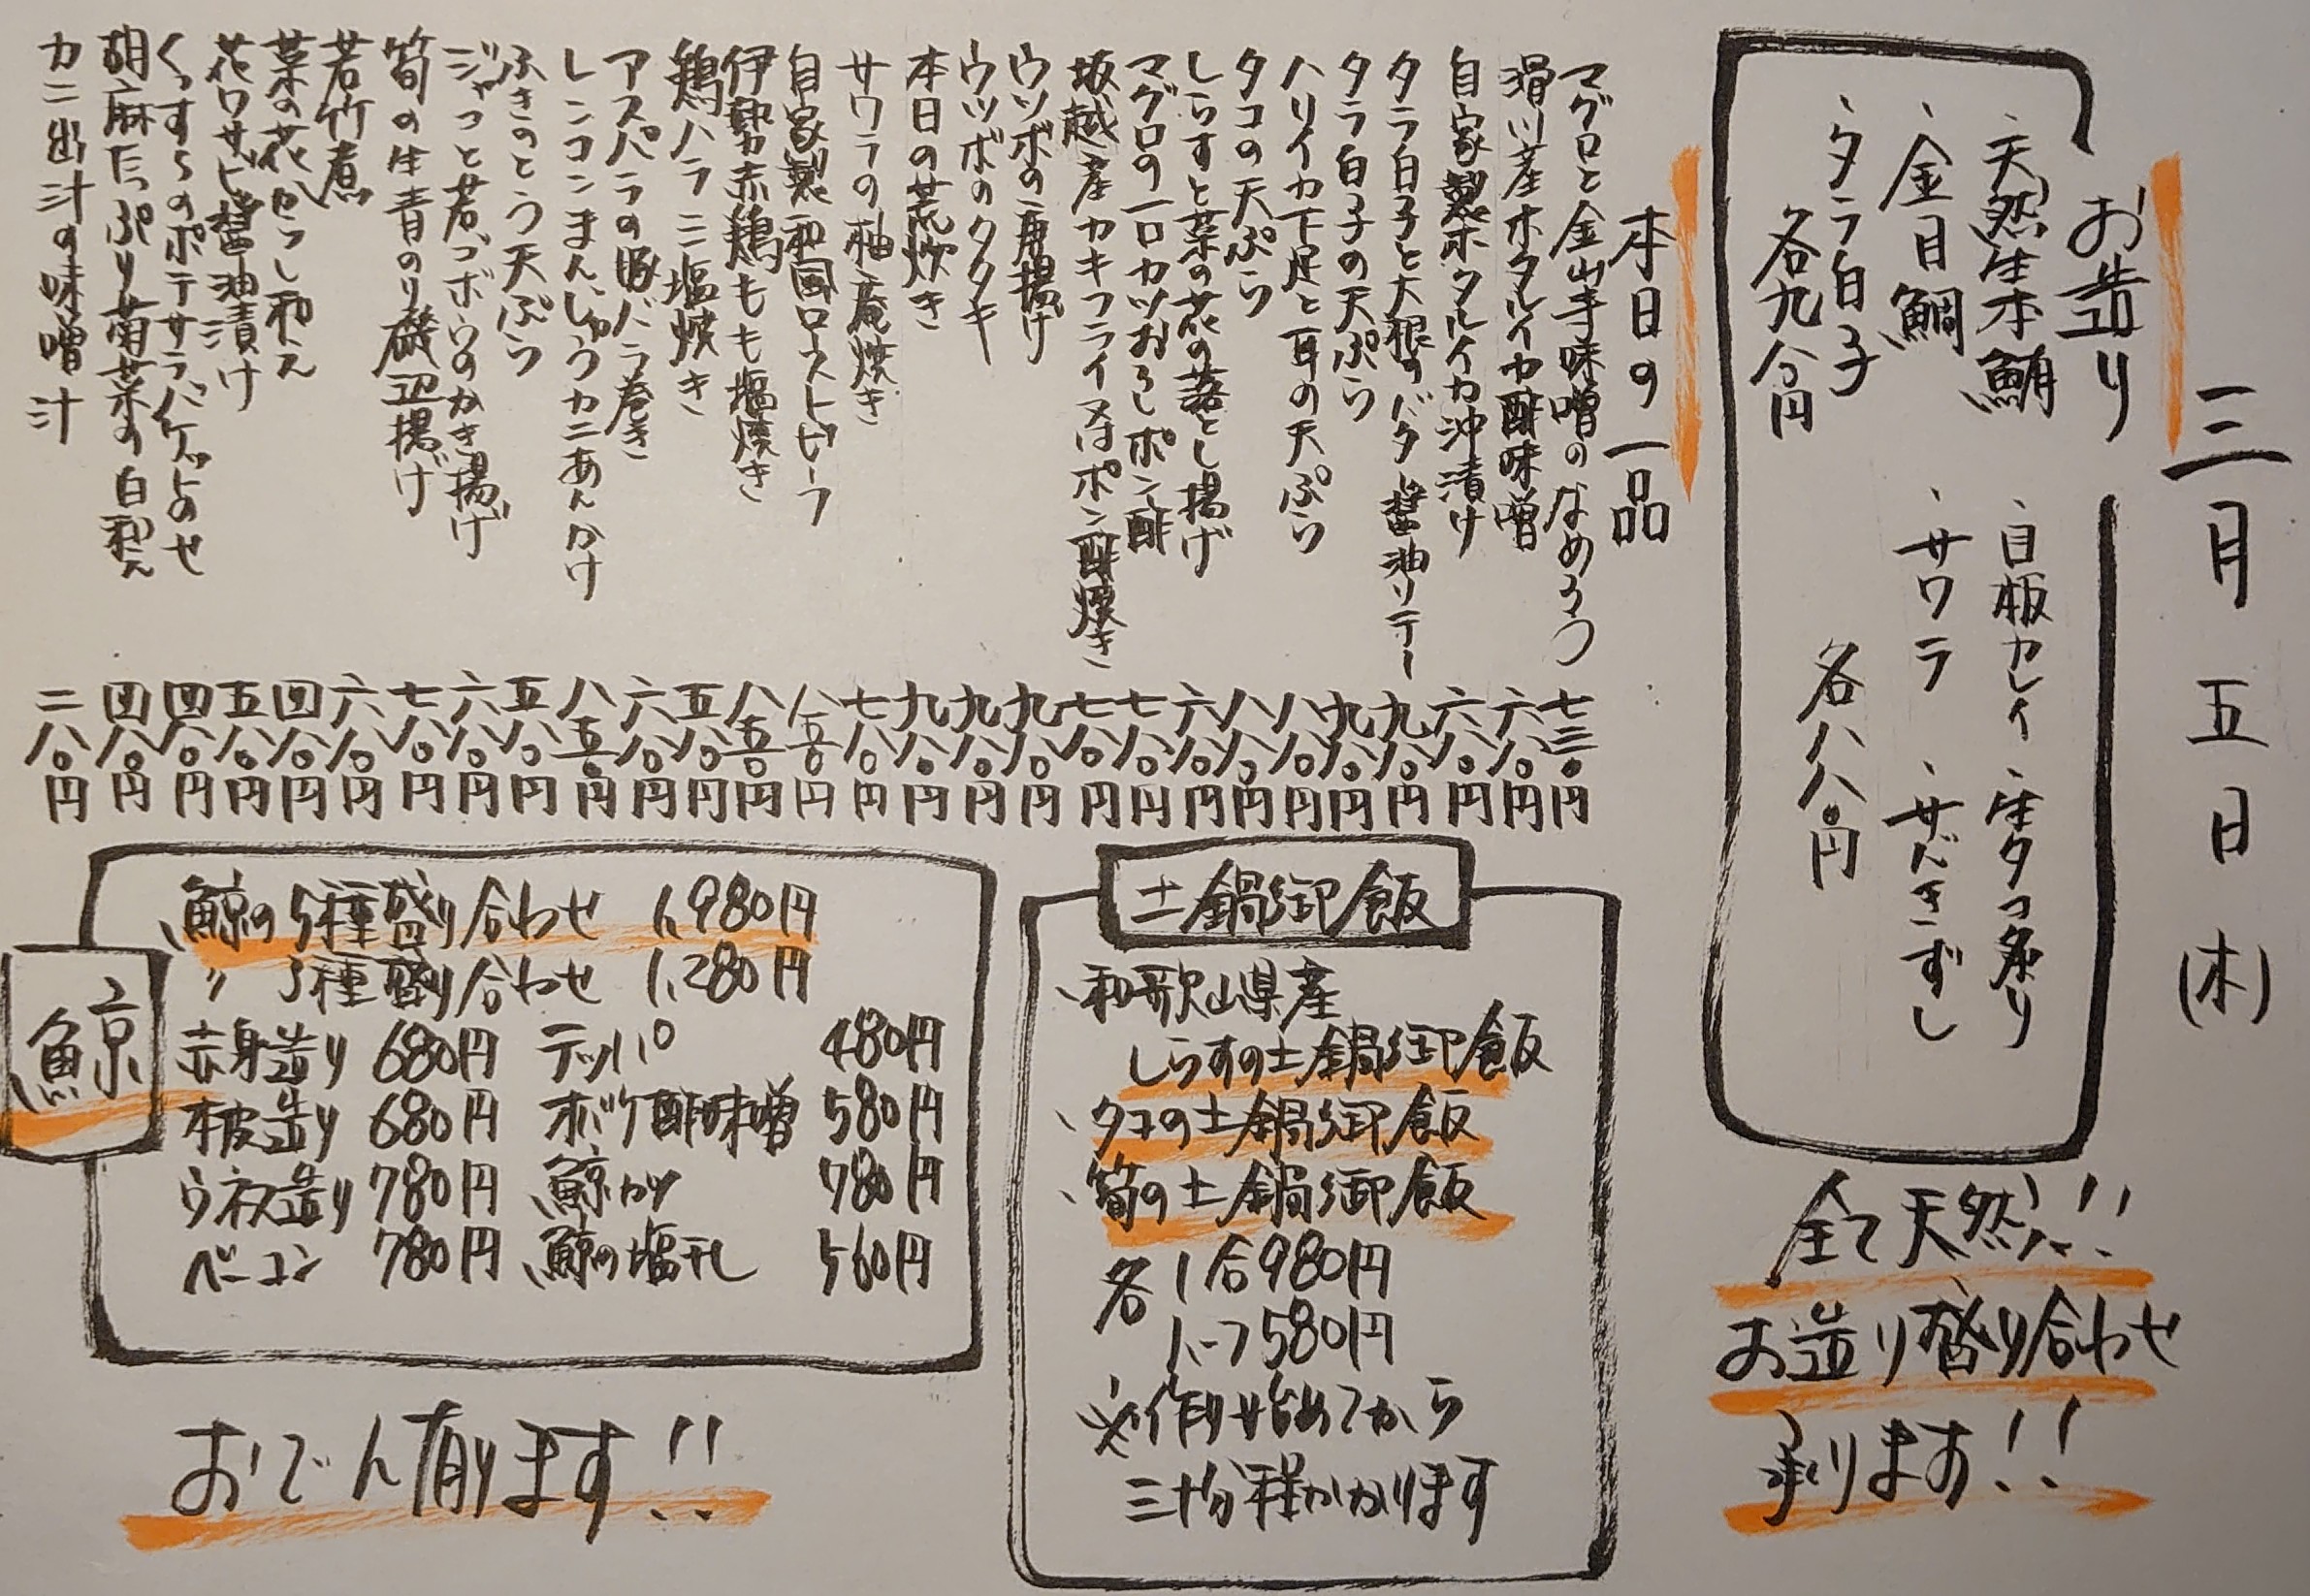 三月五日(木)
お造り
、天然生本鮪
、金目鯛
、タラ白子
各九八〇円
、目板カレイ
、生タコ炙り
、サワラ
、サバきずし
各八八〇円
全て天然!!
お造り盛り合わせ
承ります!!
本日の一品
マグロと金山寺味噌のなめろう 七三〇円
滑川産ホタルイカ酢味噌 六八〇円
自家製ホタルイカ沖漬け 六八〇円
タラ白子と大根のバター醤油ソテー 九八〇円
タラ白子の天ぷら 九八〇円
ハリイカ下足と耳の天ぷら 八八〇円
タコの天ぷら 八八〇円
しらすと菜の花の落とし揚げ 六八〇円
マグロの一口カツおろしポン酢 七八〇円
坂越産カキフライ又はポン酢焼き 七八〇円
ウツボの唐揚げ 九八〇円
ウツボのタタキ 九八〇円
本日の荒炊き 九八〇円
サワラの柚庵焼き 七八〇円
自家製和風ローストビーフ 八五〇円
伊勢赤鶏もも塩焼き 八五〇円
鶏ハラミ塩焼き 五八〇円
アスパラの豚バラ巻き 六八〇円
レンコンまんじゅうカニあんかけ 八五〇円
ふきのとう天ぷら 五八〇円
ジャコと若ゴボウのかき揚げ 六八〇円
筍の生青のり磯辺揚げ 七八〇円
若竹煮 六八〇円
菜の花からし和え 四八〇円
花ワサビ醤油漬け 五八〇円
くずしのポテサラバゲットのせ 四八〇円
胡麻たっぷり菊菜の白和え 四八〇円
カニ出汁の味噌汁 二八〇円
土鍋御飯
、和歌山県産
しらすの土鍋御飯
、タコの土鍋御飯
、筍の土鍋御飯
各 1合980円
ハーフ580円
※作り始めてから
三十分程かかります
鯨
、鯨の5種盛り合わせ 1,980円
〃 3種盛り合わせ 1,280円
赤身造り 680円 テッパ 480円
本皮造り 680円 オバケ酢味噌 580円
ウネス造り 780円 鯨カツ 780円
ベーコン 780円 鯨の塩干し 560円
おでん有ります!!